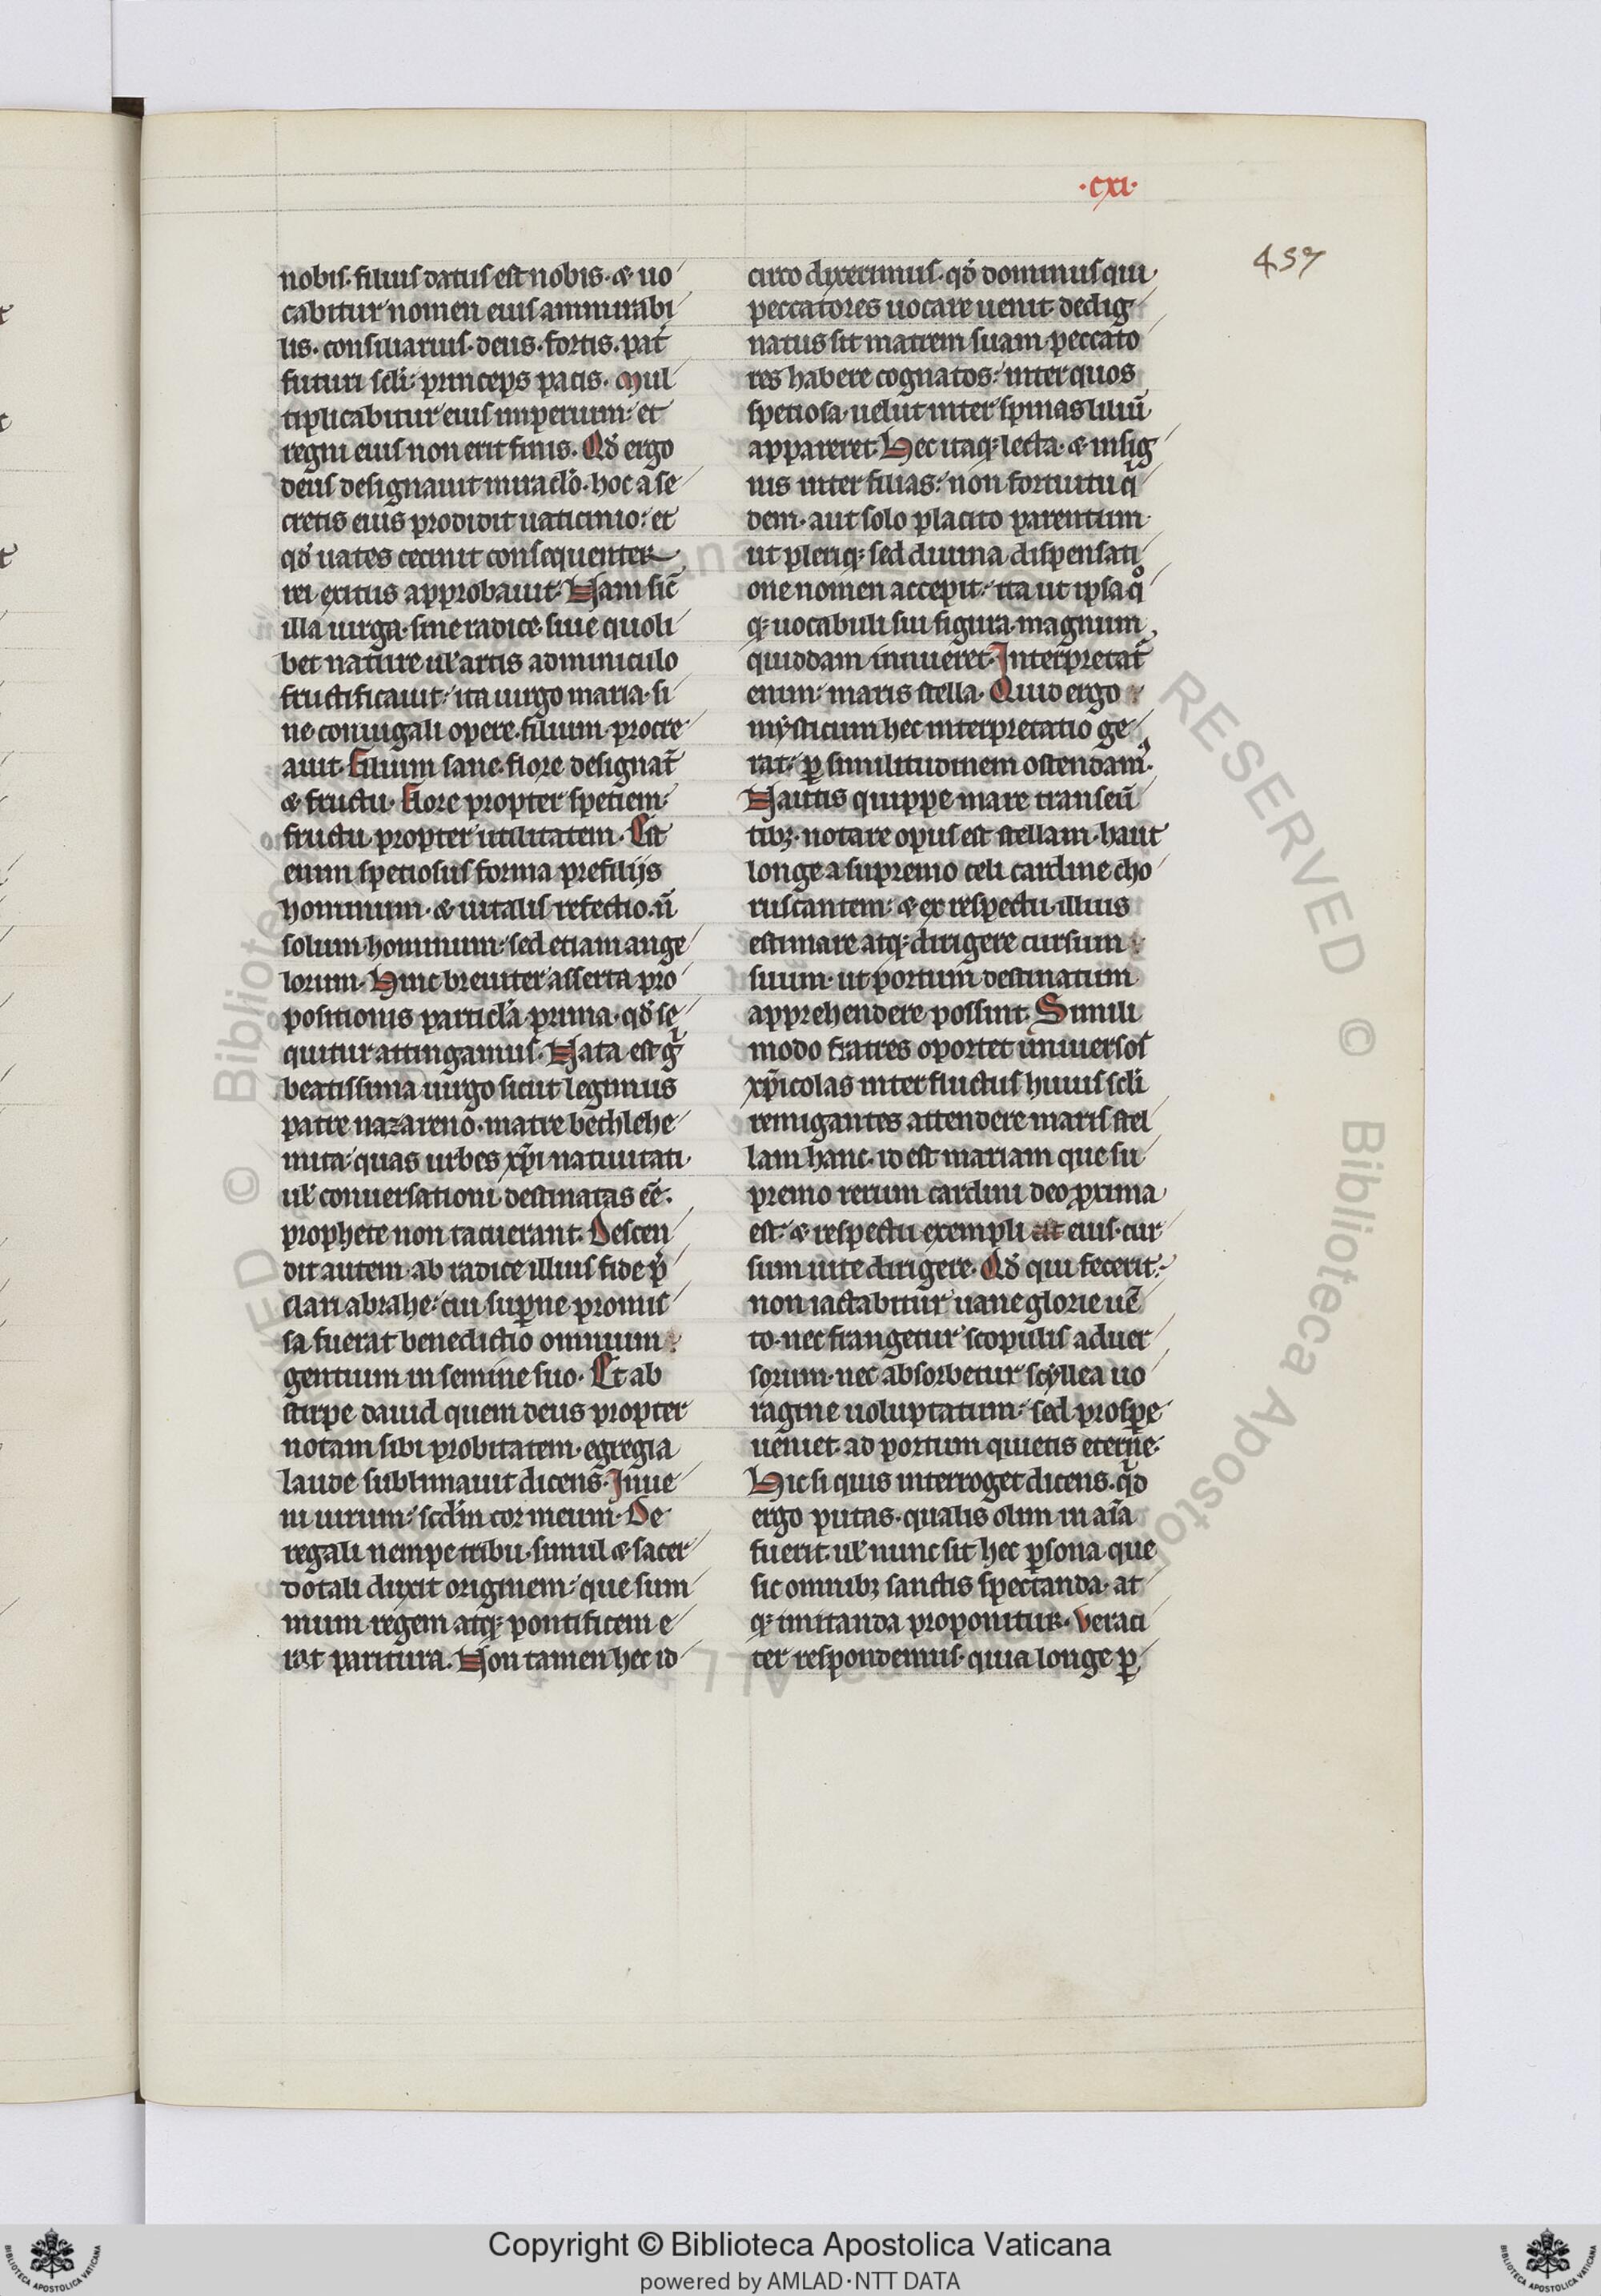 ·cxi·
457
nobis. filius datus est nobis. & uo
cabitur nomen eius ammirabi
lis. consiliarius. deus. fortis. pat̄
futuri scl̄i: princeps pacis. Mul
tiplicabitur eius imperium: et
regni eius non erit finis. Qd̄ ergo
deus designauit miracl̄o. hoc a se
cretis eius prodidit uaticinio: et
qd̄ uates cecinit consequenter
rei exitus approbauit. Nam sic̄
illa uirga. sine radice. siue quoli
bet nature ul̄ artis adminiculo
fructificauit: ita uirgo maria. si
ne coniugali opere. filium procre
auit. Filium sane. flore designat̄
& fructu. Flore propter spetiem:
fructu propter utilitatem. Est
enim spetiosus forma prefilijs
hominum. & uitalis refectio. n̄
solum hominum: sed etiam ange
lorum. Hinc breuiter asserta pro
positionis particl̄a prima. qd̄ se
quitur attingamus. Nata est gͥ
beatissima uirgo sicut legimus
patre nazareno. matre bethlehe
mita: quas urbes xp̄i natiuitati
ul̄ conuersationi destinatas eē.
prophete non tacuerant. Descen
dit autem ab radice illius fide p̄
clari abrahe: cui sup̱ne promis
sa fuerat benedictio omnium
gentium in semine suo. Et ab
stirpe dauid quem deus propter
notam sibi probitatem. egregia
laude sublimauit dicens. Inue
ni uirum: scd̄m cor meum. De
regali nempe tribu. simul & sacer
dotali duxit originem: que sum
mum regem atq; pontificem e
rat paritura. Non tamen hec id
circo dixerimus. qd̄ dominus qui
peccatores uocare uenit. dedig
natus sit matrem suam peccato
res habere cognatos: inter quos
spetiosa. uelut inter spinas liliū
appareret. Hec itaq; lecta. & insig
nis inter filias: non fortuitu qͥ
dem. aut solo placito parentum.
ut pleriq; sed diuina dispensati
one nomen accepit: ita ut ipsa qͦ
q; uocabuli sui figura. magnum
quiddam innueret. Interpretat̄
enim: maris stella. Quid ergo
mysticum hec interpretatio ge
rat: p̱ similitudinem ostendamꝰ.
Nautis quippe mare transeū
tibꝫ. notare opus est stellam. haut
longe a supremo celi cardine cho
ruscantem: & ex respectu illius
estimare atq; dirigere cursum
suum. ut portum destinatum
apprehendere possint. Simili
modo fratres oportet uniuersos
xp̄icolas inter fluctus huius scl̄i
remigantes attendere maris stel
lam hanc. id est mariam que su
premo rerum cardini deo ꝓxima
est: & respectu exempli eius. cur
sum uite dirigere. Qd̄ qui fecerit:
non iactabitur uane glorie uē
to. nec frangetur scopulis aduer
sorum. nec absorbetur scyllea uo
ragine uoluptatum: sed prosp̱e
ueniet ad portum quietis eterne.
Hic si quis interroget dicens. qͥd
ergo putas. qualis olim in aīa
fuerit. ul̄ nunc sit hec p̱sona que
sic omnibꝫ sanctis spectanda. at
q; imitanda proponitur. Veraci
ter respondemus. quia longe p̱
Copyright © Biblioteca Apostolica Vaticana
powered by AMLAD·NTT DATA